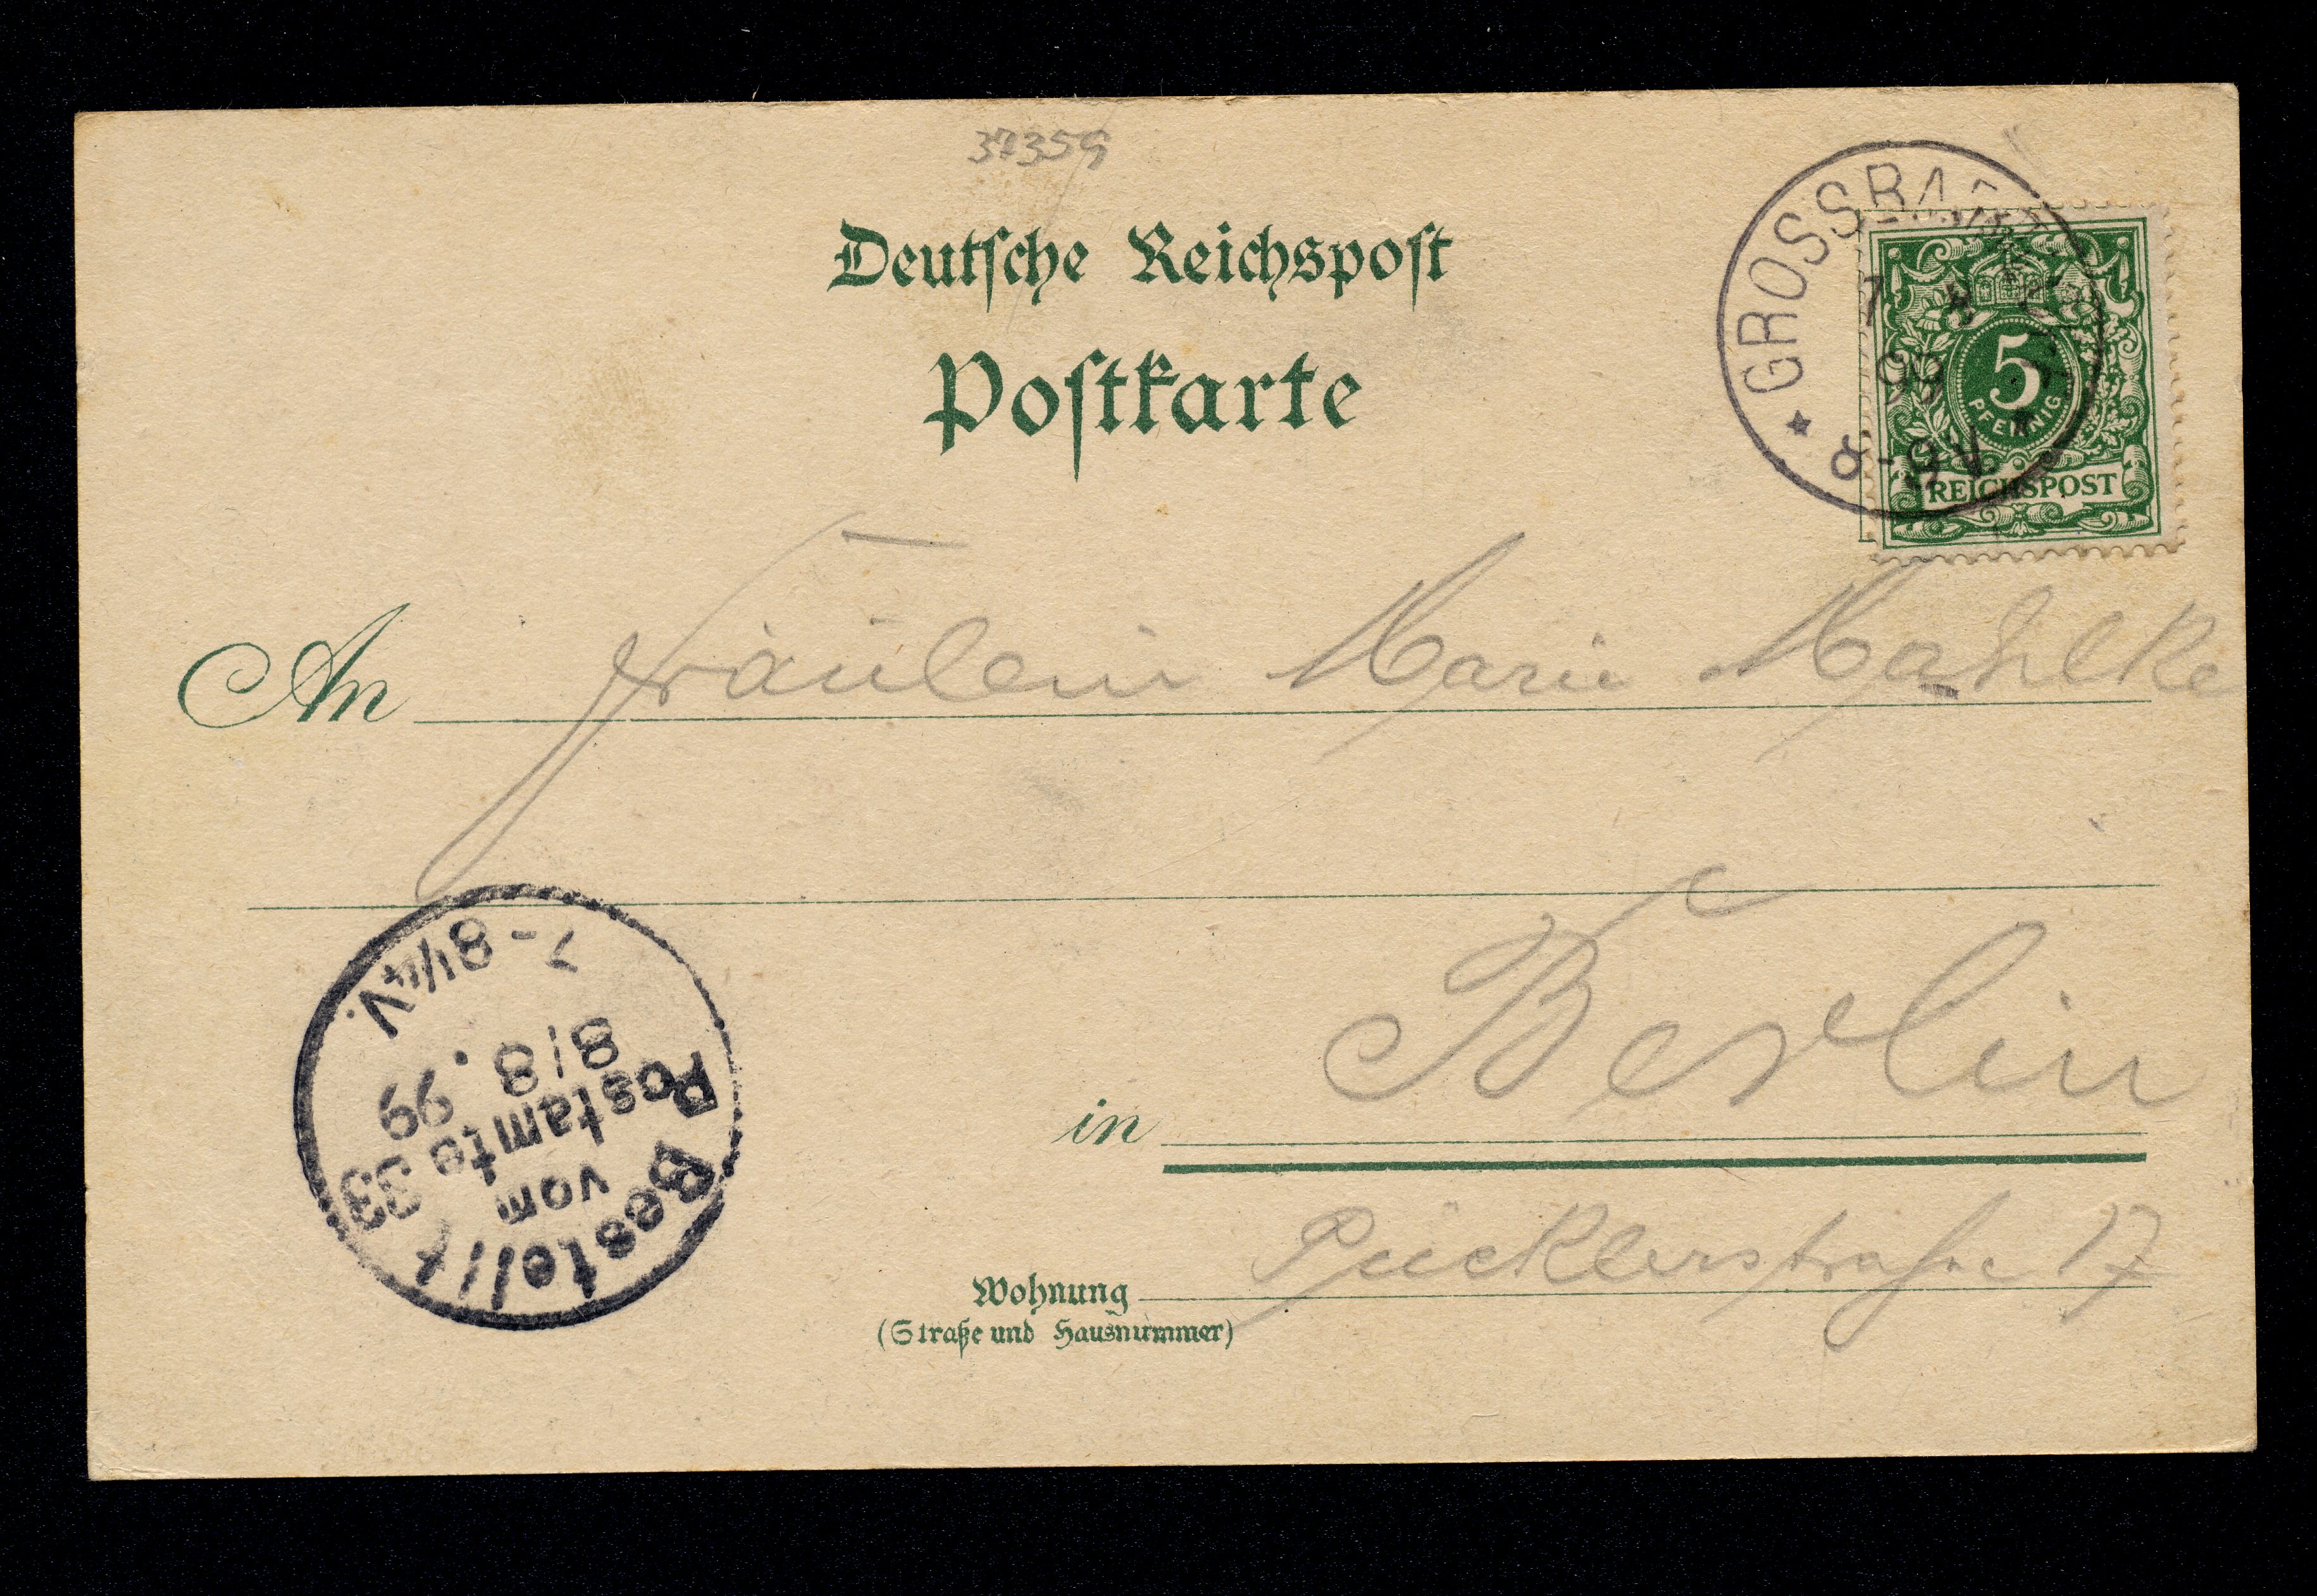 37359
Deutsche Reichspost
Postkarte
7 8
99
8-9V
5
PFENNIG
REICHSPOST
An Fräulein Marie Mahlke
in Berlin
Wohnung Pücklerstraße 17
(Straße und Hausnummer)
Bestellt
vom
Postamte 33
8/8. 99
7-8¼V.